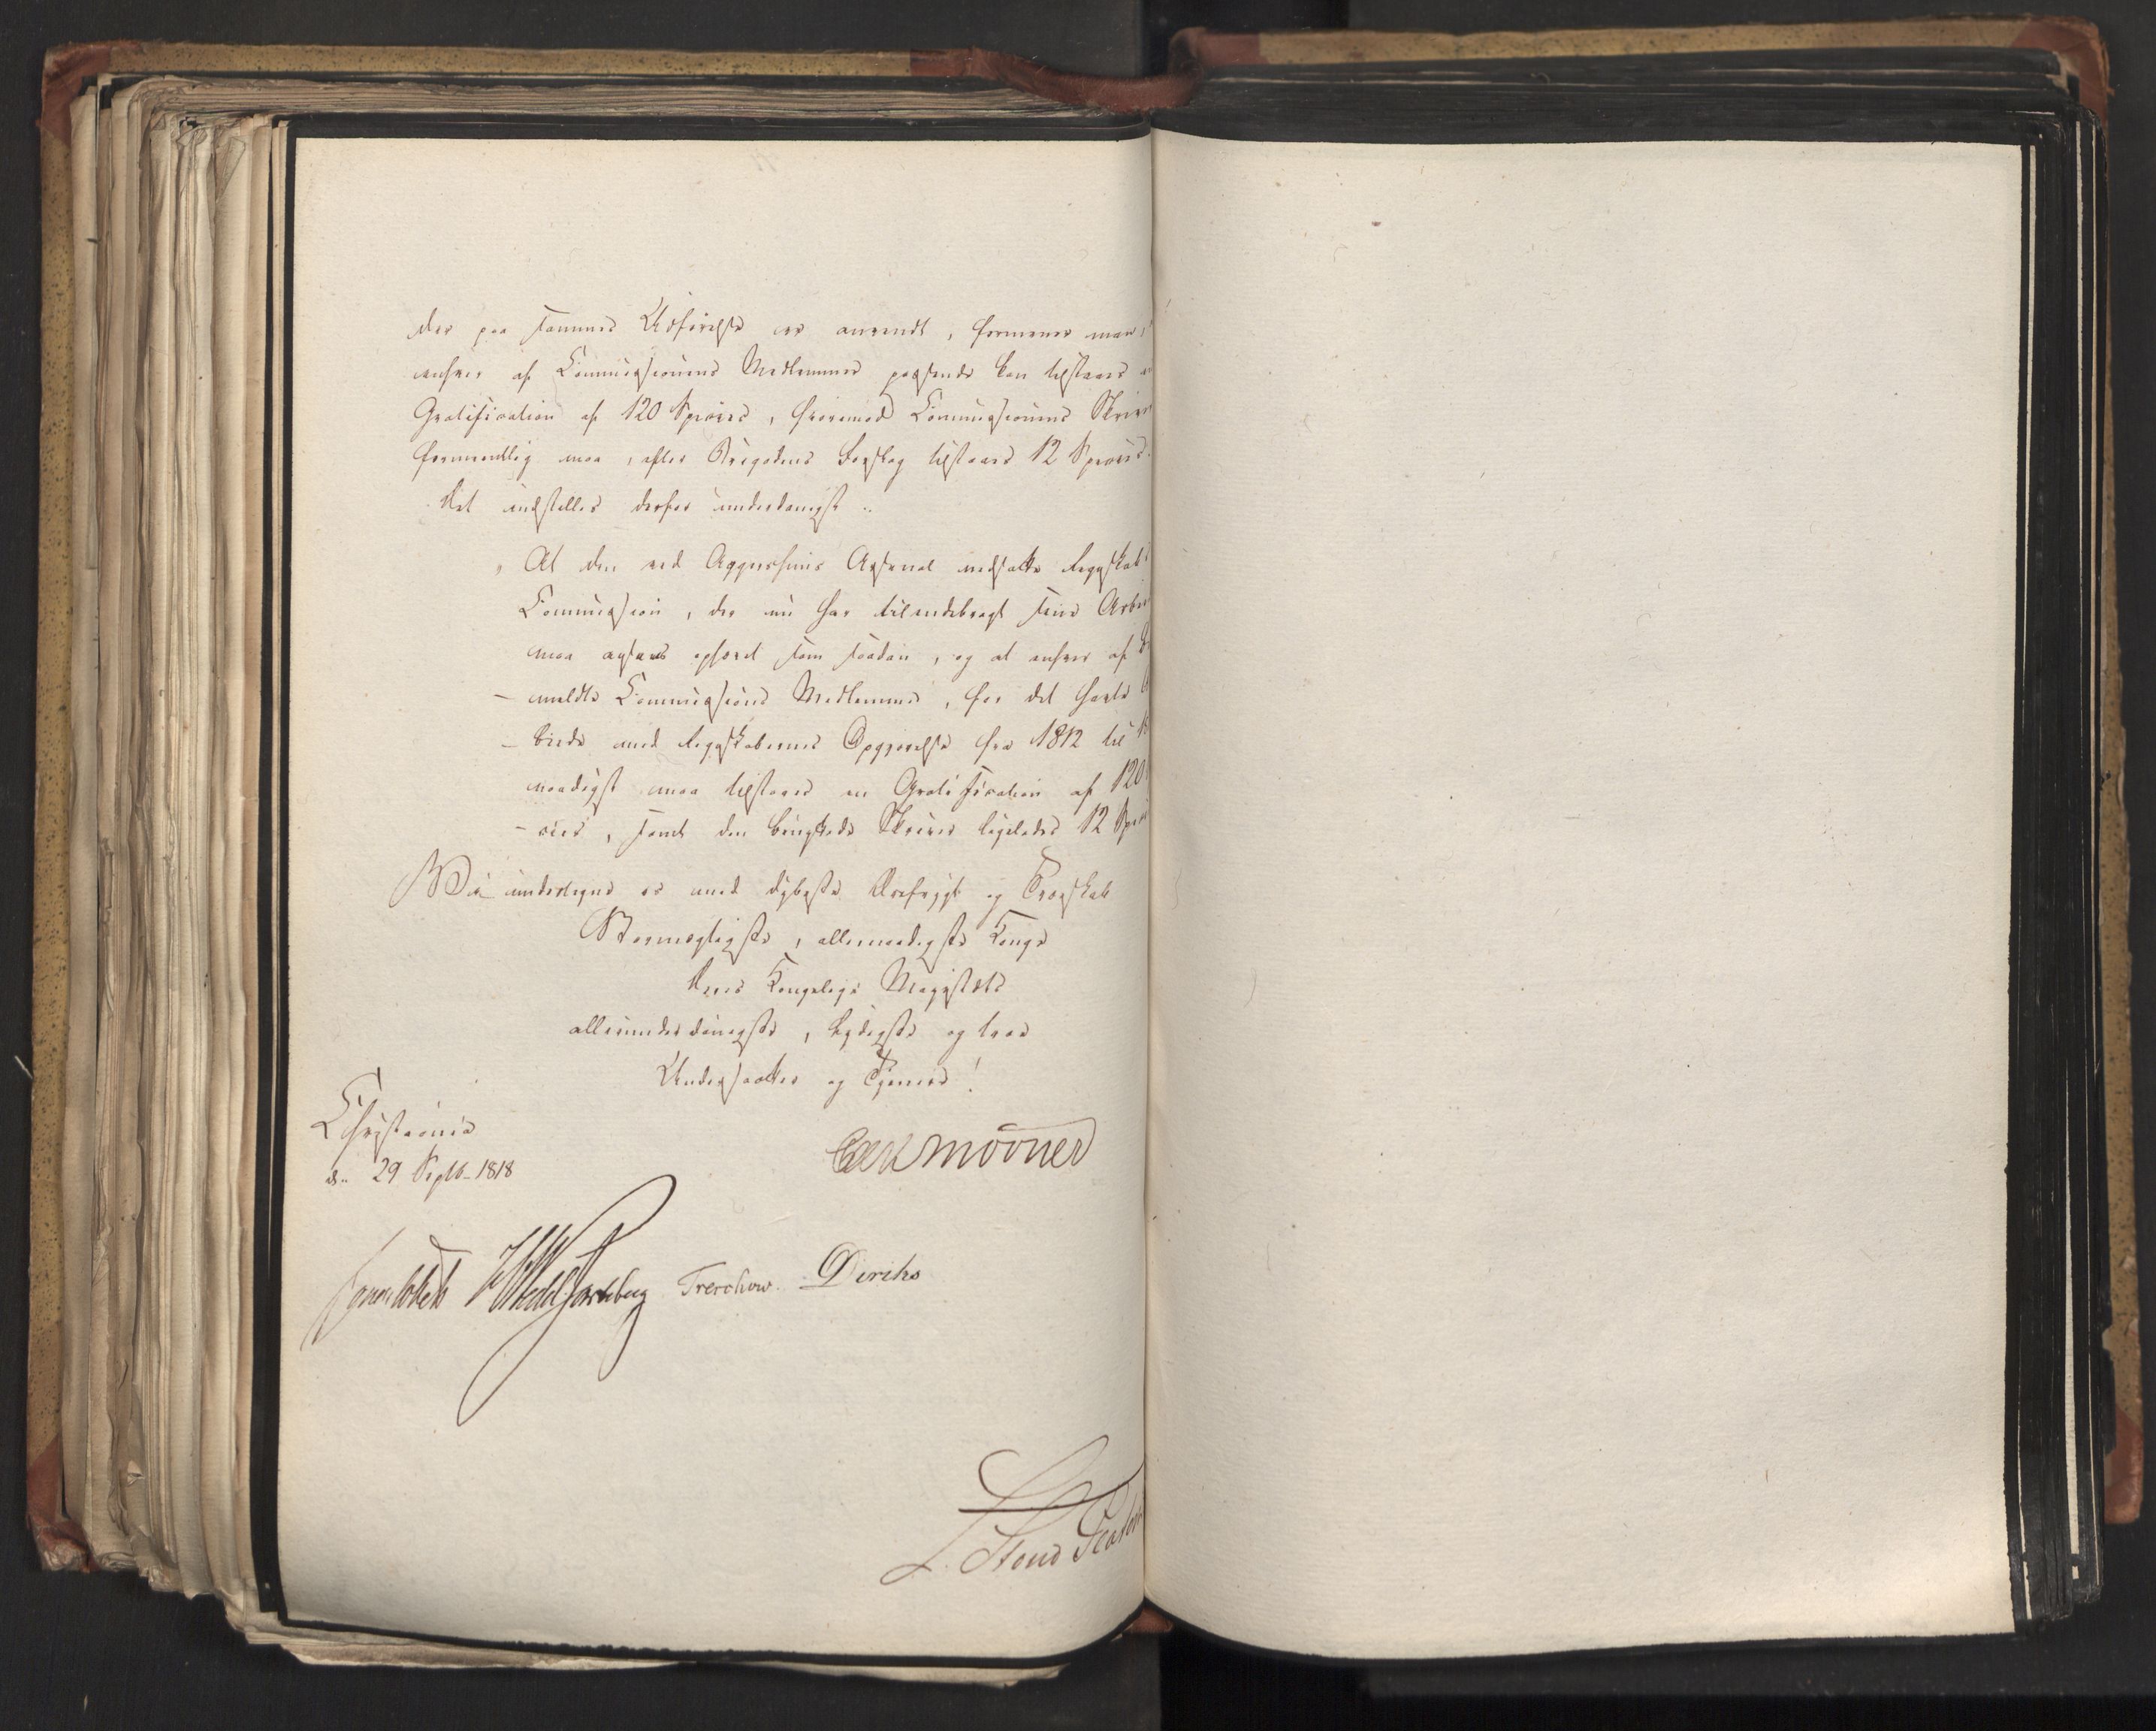 der paa sammes Udførelse er anvendt, formener man,
enhver af Commissionens Medlemmer passende kan tilstaaes
Gratification af 120 Species, hvorimod Commissionens Skriver
formeentlig maa, efter Brigadens Forslag tilstaaes 12 Species.
Det indstilles derfor underdanigst:
" At den ved Aggershuus Arsenal nedsatte Regnskabs
Commission, der nu har tilendebragt sine Arbei
maa ansees ophævet som saadan, og at enhver af be
- meldte Commissions Medlemmer, for det havte
- beide med Regnskabernes Opgjørelse fra 1812 til
naadigst maa tilstaaes en Gratification af 120
- cies, samt den brugte Skriver ligeledes 12 Speci
Vi undertegne os med dybeste Ærefrygt og Troeskab
Stormægtigste, allernaadigste Konge
Deres Kongelige Majestæts
allerunderdanigste, lydigste og troe
Undersaatter og Tjenere!
Christiania
d. 29 Septb. 1818
Carl Mörner
Sommerhielm HWedel Jarlsberg Treschow. Diriks
L. Stoud Platou